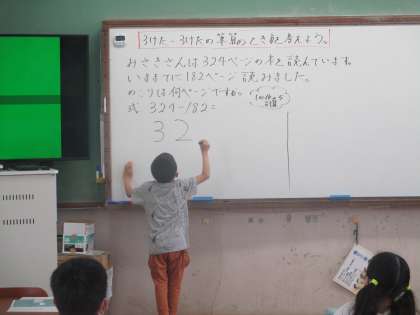 3けた-3けたの筆算のしき方を考えよう。
みさきさんは324ページの本を読んでいます。
いままでに182ページ読みました。
のこりは何ページですか。
式 324-182=
32